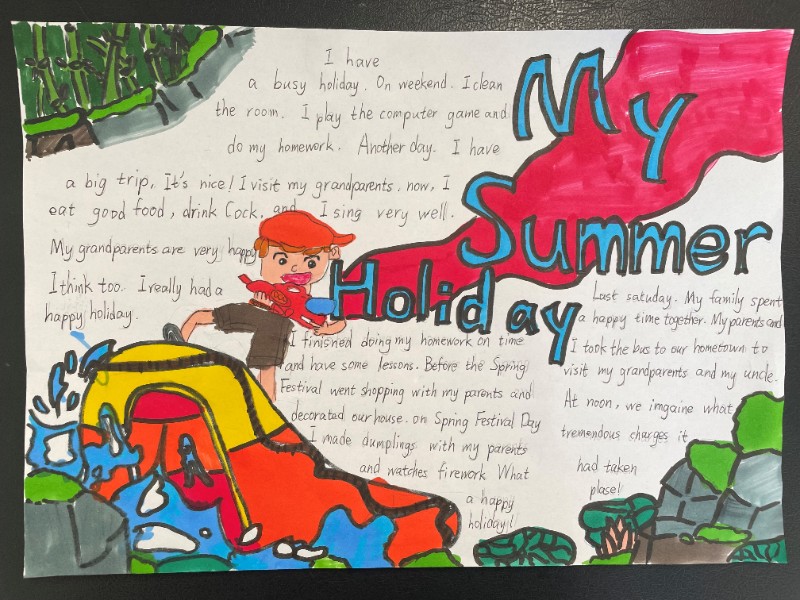 My
Summer
Holiday
I have
a busy holiday. On weekend. I clean
the room. I play the computer game and
do my homework. Another day. I have
a big trip, It's nice! I visit my grandparents. now, I
eat good food, drink Cock. and I sing very well.
My grandparents are very happy
I think too. I really had a
happy holiday.
I finished doing my homework on time
and have some lessons. Before the Spring
Festival went shopping with my parents and
decorated our house. on Spring Festival Day
I made dumplings with my parents
and watches firework What
a happy
holiday!
Last satuday. My family spent
a happy time together. My parents and
I took the bus to our hometown to
visit my grandparents and my uncle.
At noon, we imgaine what
tremendous charges it
had taken
plase!